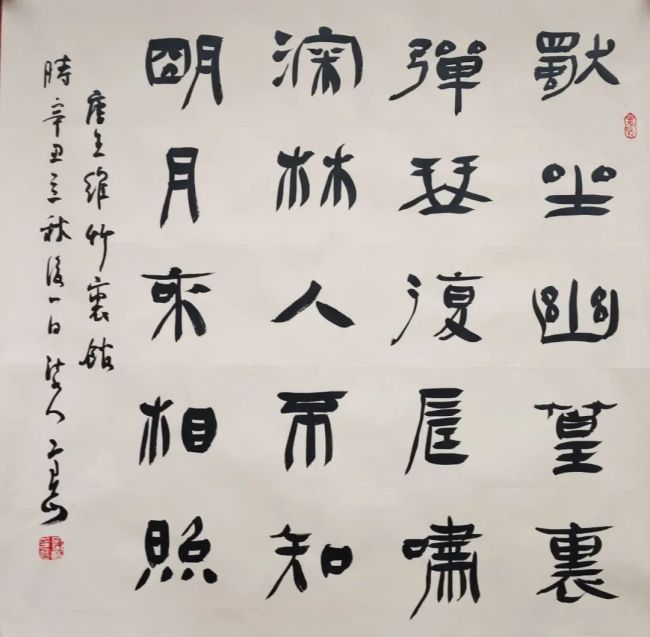 獨坐幽篁裏
彈琴復長嘯
深林人不知
朙月來相照
唐王維竹裏館
時辛丑立秋後一日